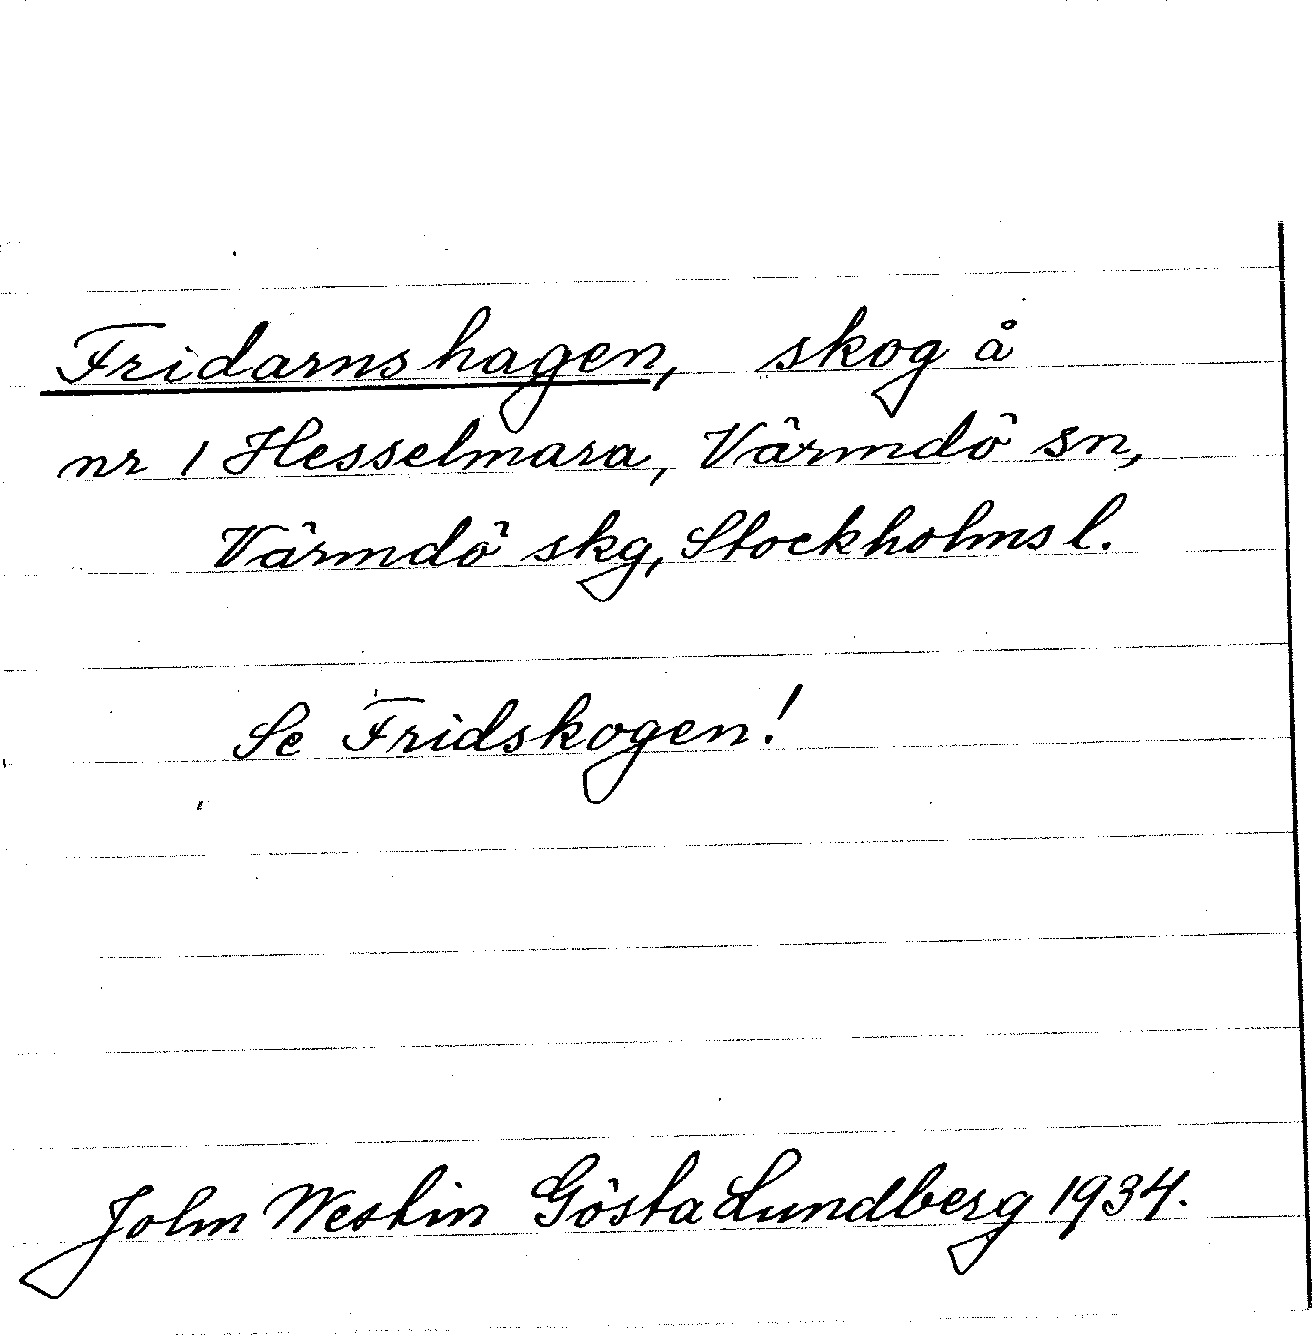 Fridarnshagen, skog å
nr 1 Hesselmara, Värmdö sn,
Värmdö skg, Stockholms l.
Se Fridskogen!
John Westin Gösta Lundberg 1934.